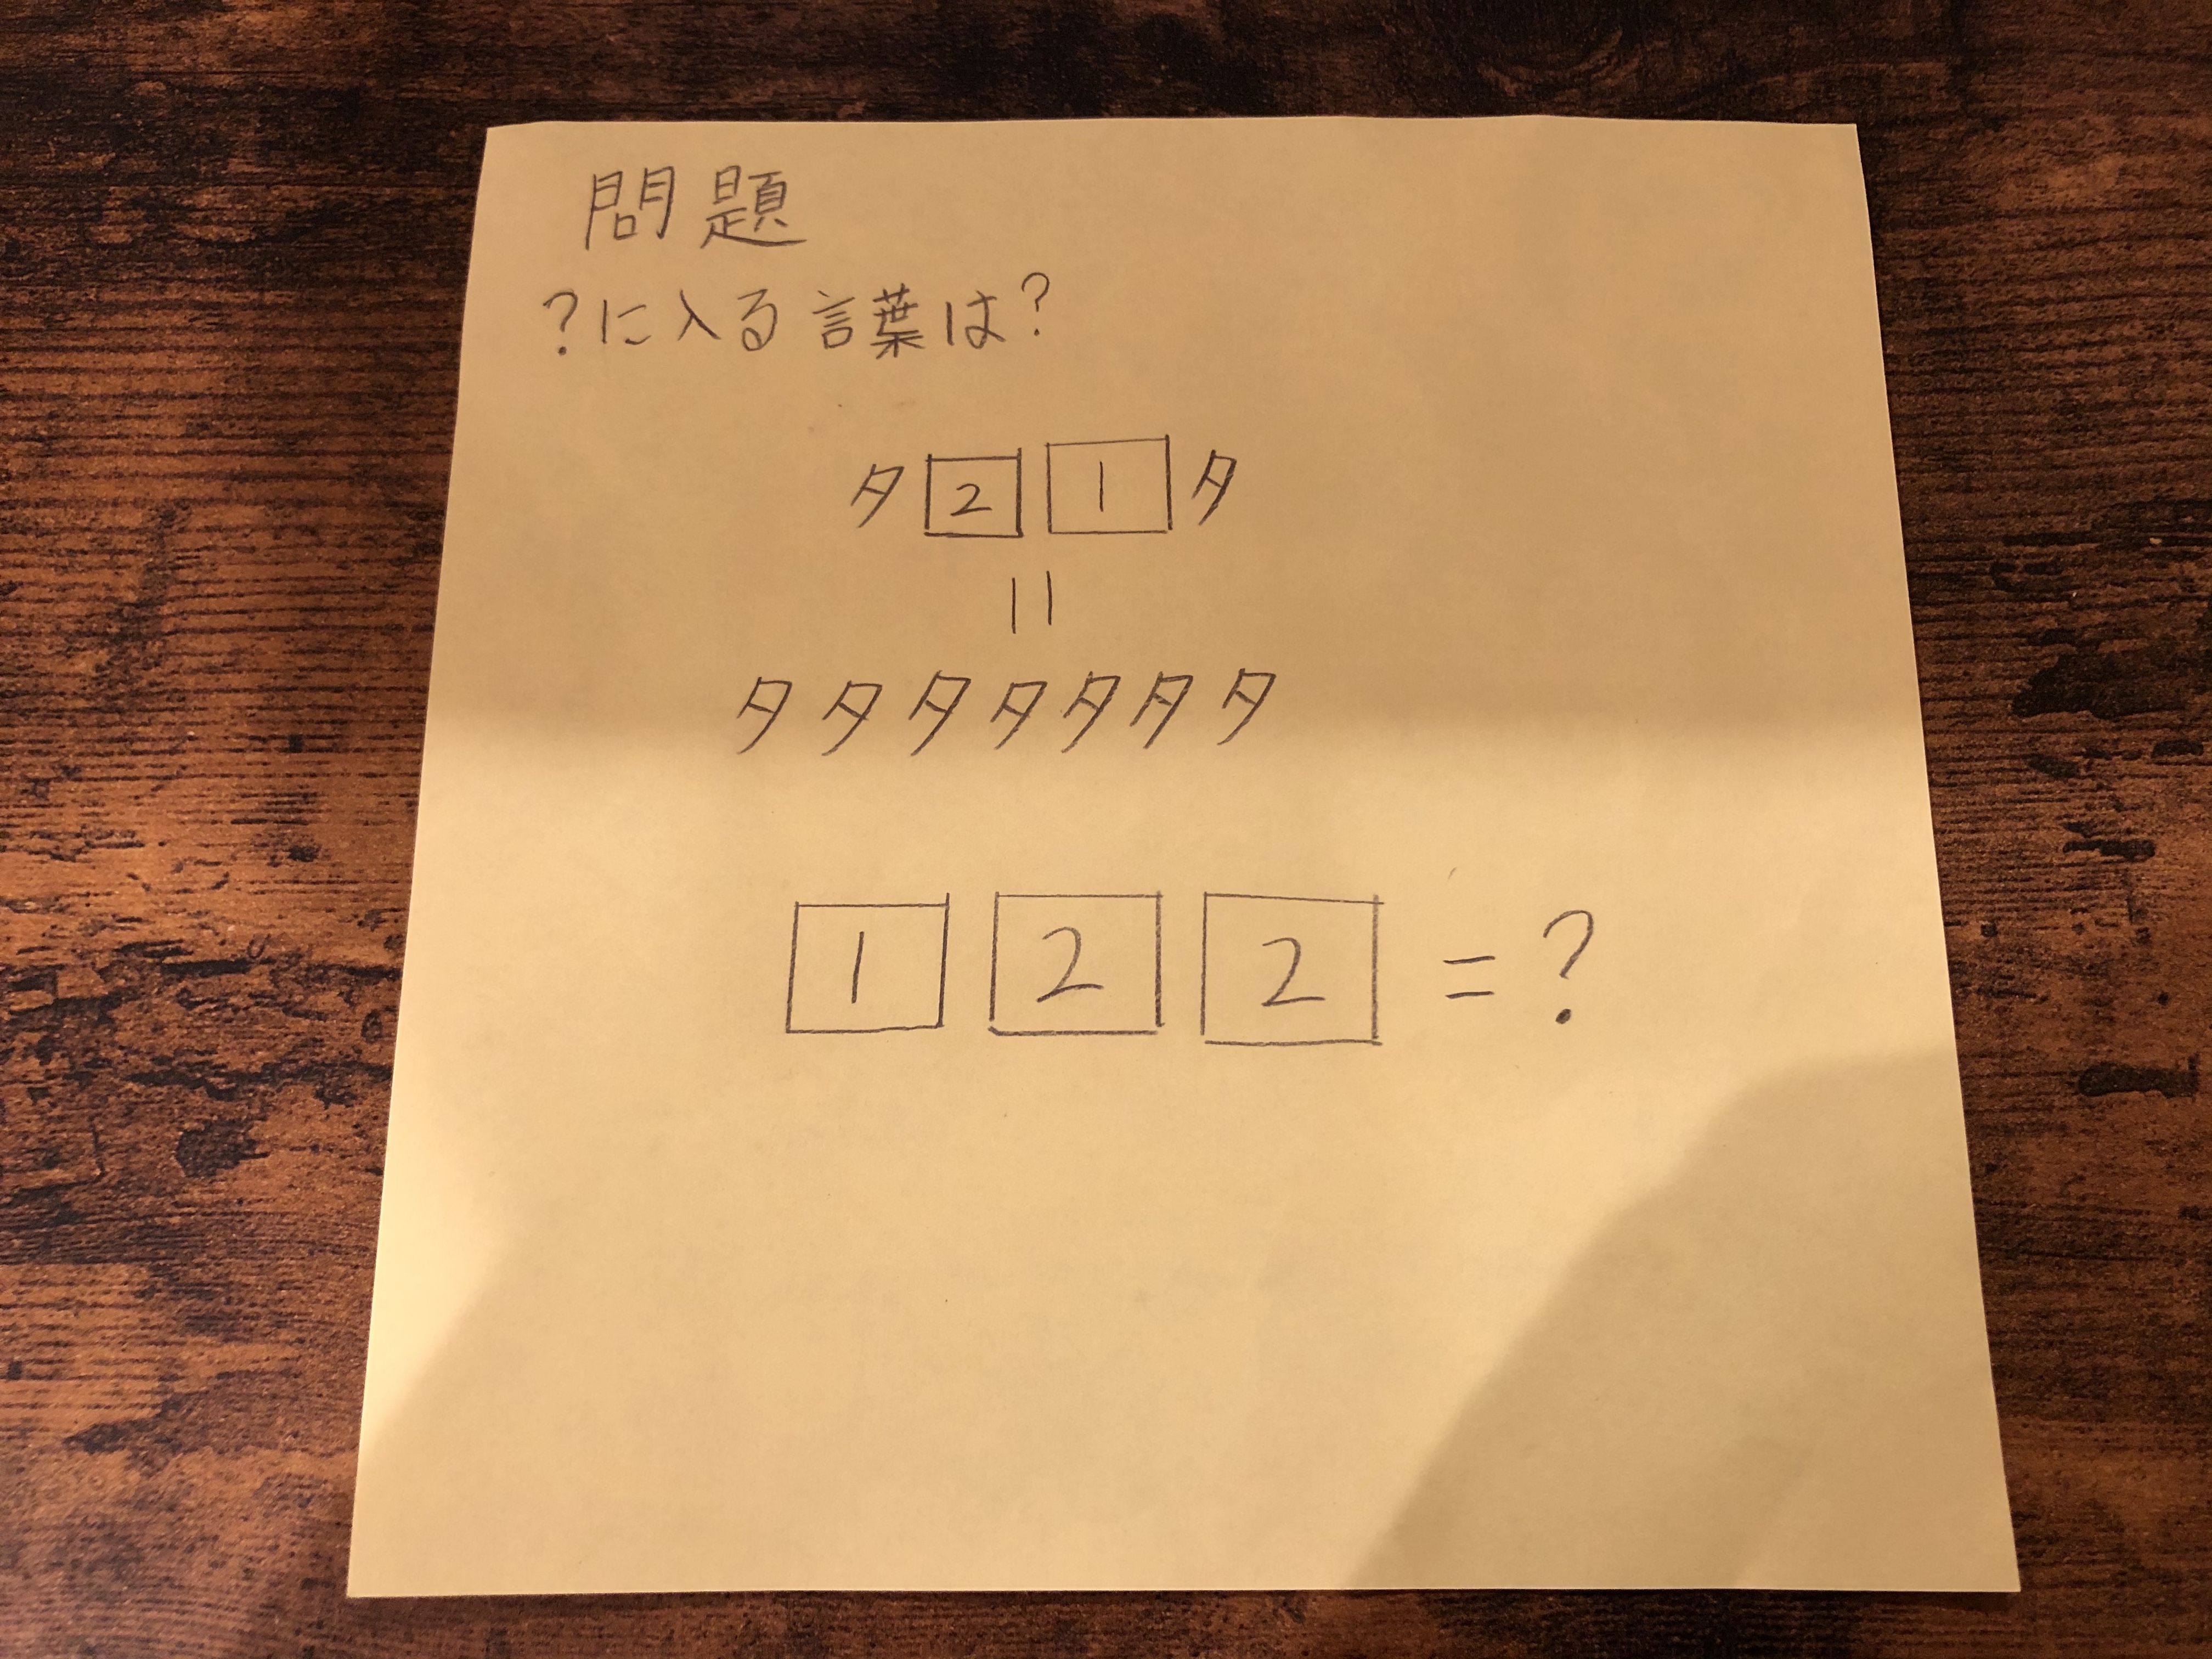 問題
?に入る言葉は?
タ 2 1 タ
||
タタタタタタタ
1 2 2 = ?